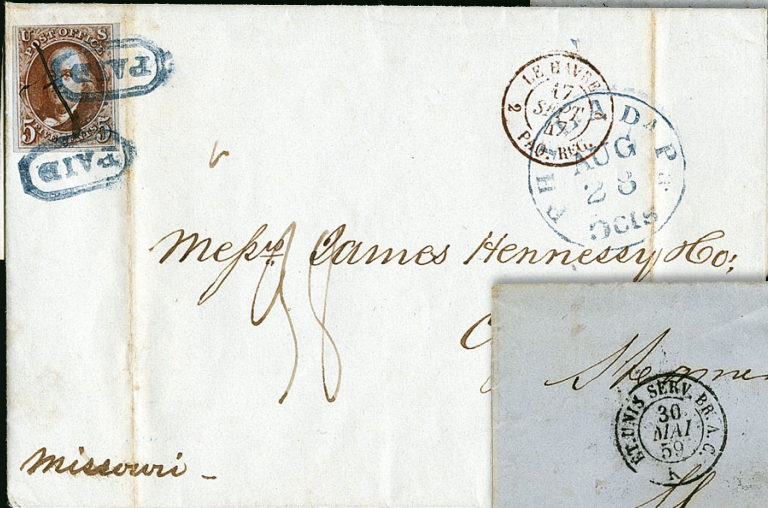 U S
POST OFFICE
5 FIVE CENTS 5
PAID
PAID
LE HAVRE
17
SEPT
47
PAQ. REG.
2 2
PHILADA Pa.
AUG
28
5cts
Messrs. James Hennessy & Co:
38
Missouri -
ET. UNIS SERV. BR. A. C.
30
MAI
59
K